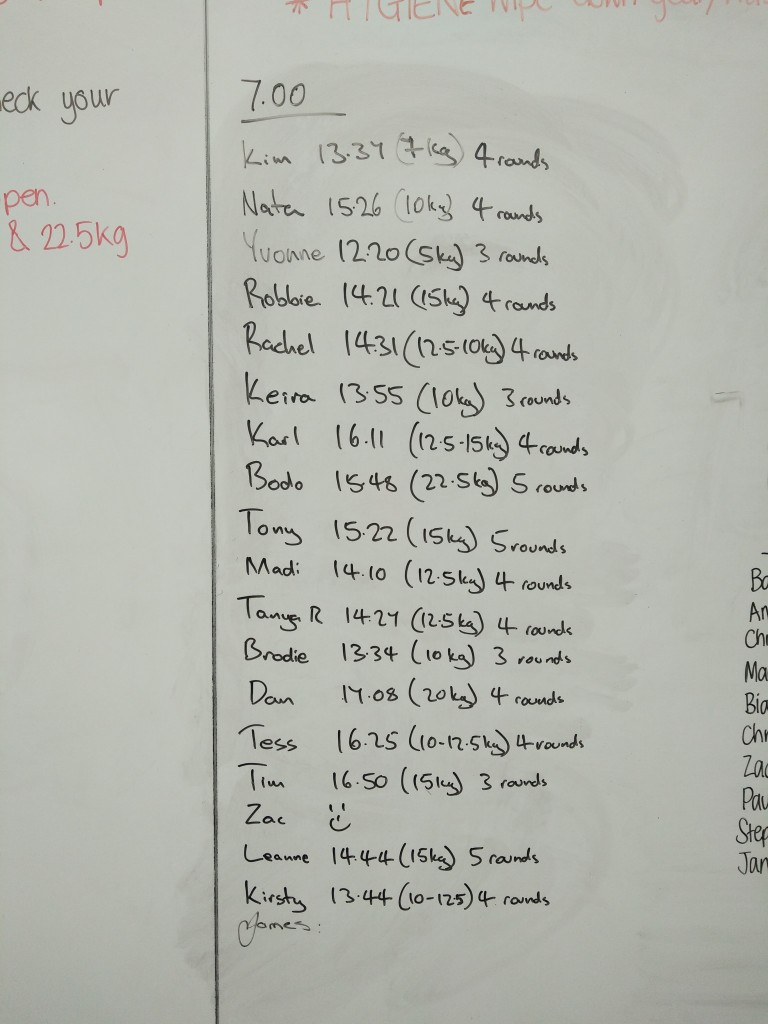 * HYGIENE wipe down
eck your
pen.
& 22.5kg
7.00
Kim 13.37 (7kg) 4 rounds
Nata 15.26 (10kg) 4 rounds
Yvonne 12.20 (5kg) 3 rounds
Robbie 14.21 (15kg) 4 rounds
Rachel 14.31 (12.5-10kg) 4 rounds
Keira 13.55 (10kg) 3 rounds
Karl 16.11 (12.5-15kg) 4 rounds
Bodo 15.48 (22.5kg) 5 rounds
Tony 15.22 (15kg) 5 rounds
Madi 14.10 (12.5kg) 4 rounds
Tanya R 14.27 (12.5kg) 4 rounds
Brodie 13.34 (10kg) 3 rounds
Dan 17.08 (20kg) 4 rounds
Tess 16.25 (10-12.5kg) 4 rounds
Tim 16.50 (15kg) 3 rounds
Zac
Leanne 14.44 (15kg) 5 rounds
Kirsty 13.44 (10-12.5) 4 rounds
James:
Bo
An
Chr
Ma
Bia
Chr
Zac
Pau
Step
Jan